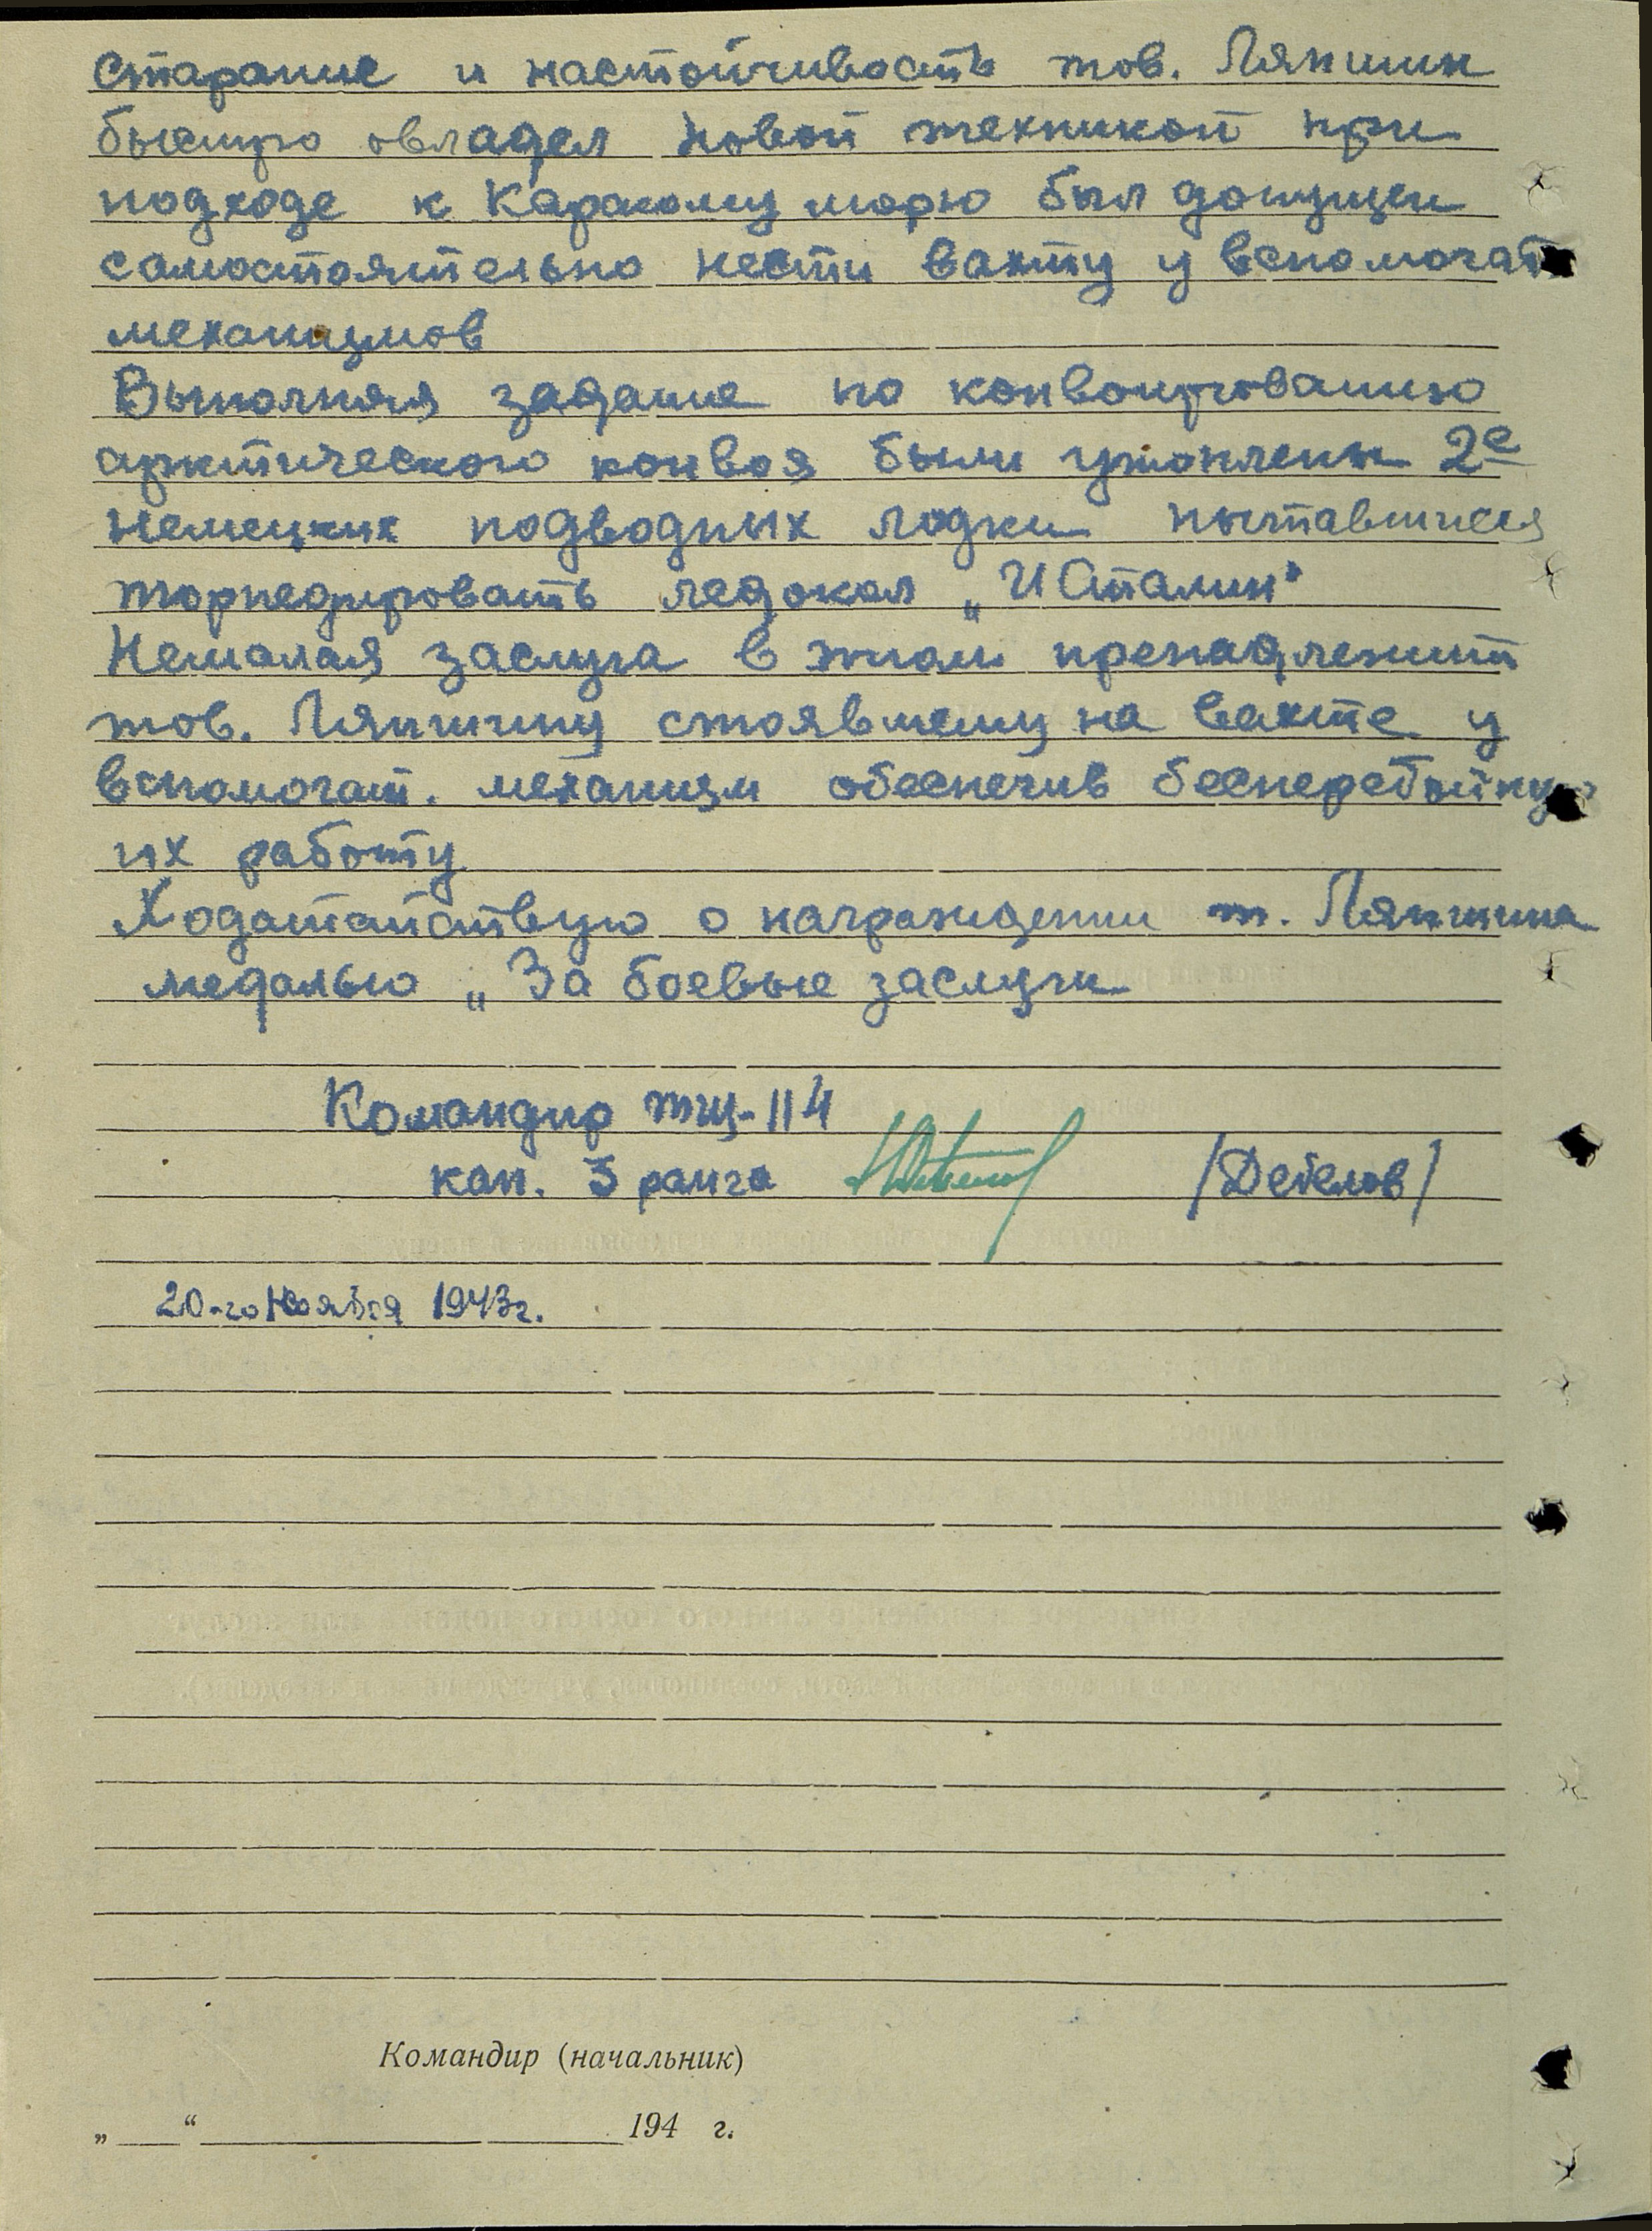 Старание и настойчивость тов. Ляпшин
быстро овладел новой техникой при
подходе к Карскому морю был допущен
самостоятельно нести вахту у вспомогат
механизмов
Выполняя задание по конвоированию
арктического конвоя были утоплены 2е
немецких подводных лодки пытавшиеся
торпедировать ледокол „И Сталин"
Немалая заслуга в этом пренадлежит
тов. Ляпшину стоявшему на вахте у
вспомогат. механизм обеспечив бесперебойную
их работу
Ходатайствую о награждении т. Ляпшина
медалью „За боевые заслуги
Командир тщ-114
кап. 3 ранга /Дебелов/
20-го Ноября 1943г.
Командир (начальник)
„ “ 194 г.